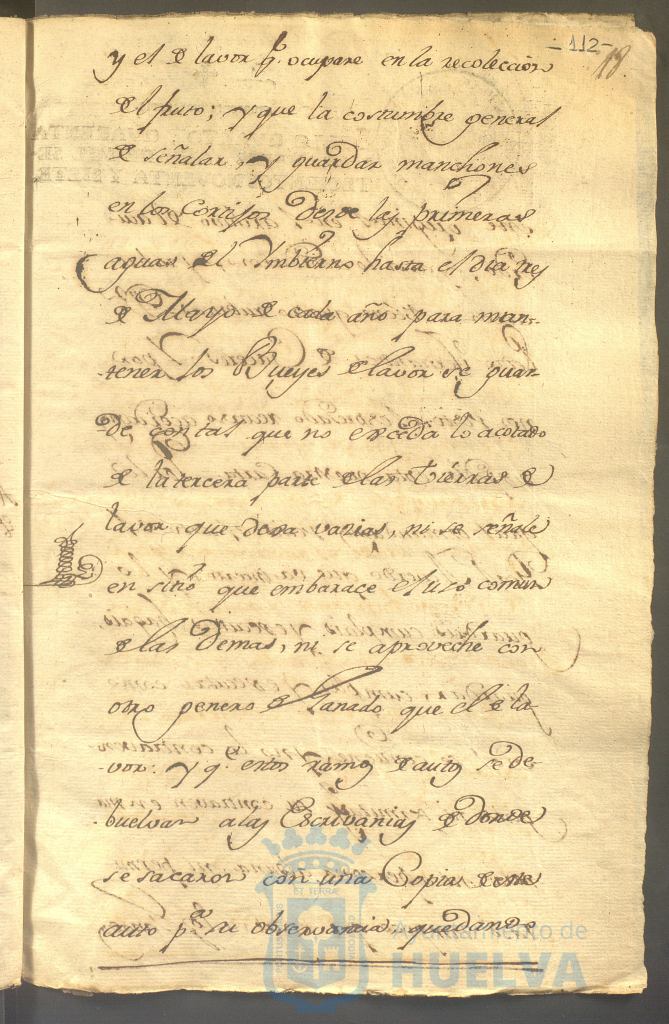 -112-
18.
y el de lavor q. ocupare en la recoleccion
del fruto; y que la costumbre general
de señalar, y guardar manchones
en los Cortijos desde las primeras
aguas del Ymbierno hasta el dia tres
de Mayo de cada año para man-
tener los Bueyes de lavor se guar-
de, con tal que no exceda lo acotado
de la tercera parte de las tierras de
lavor que deja vacias, ni se señale
en sitio que embarace el uso comun
de las Demas, ni se aproveche con
otro genero de Ganado que el de la-
vor: y q. estos ramos de autos se de-
buelvan a las Escrivanias de donde
se sacaron con una Copia de este
auto p.ª su observancia, quedando
Ayuntamiento de
HUELVA